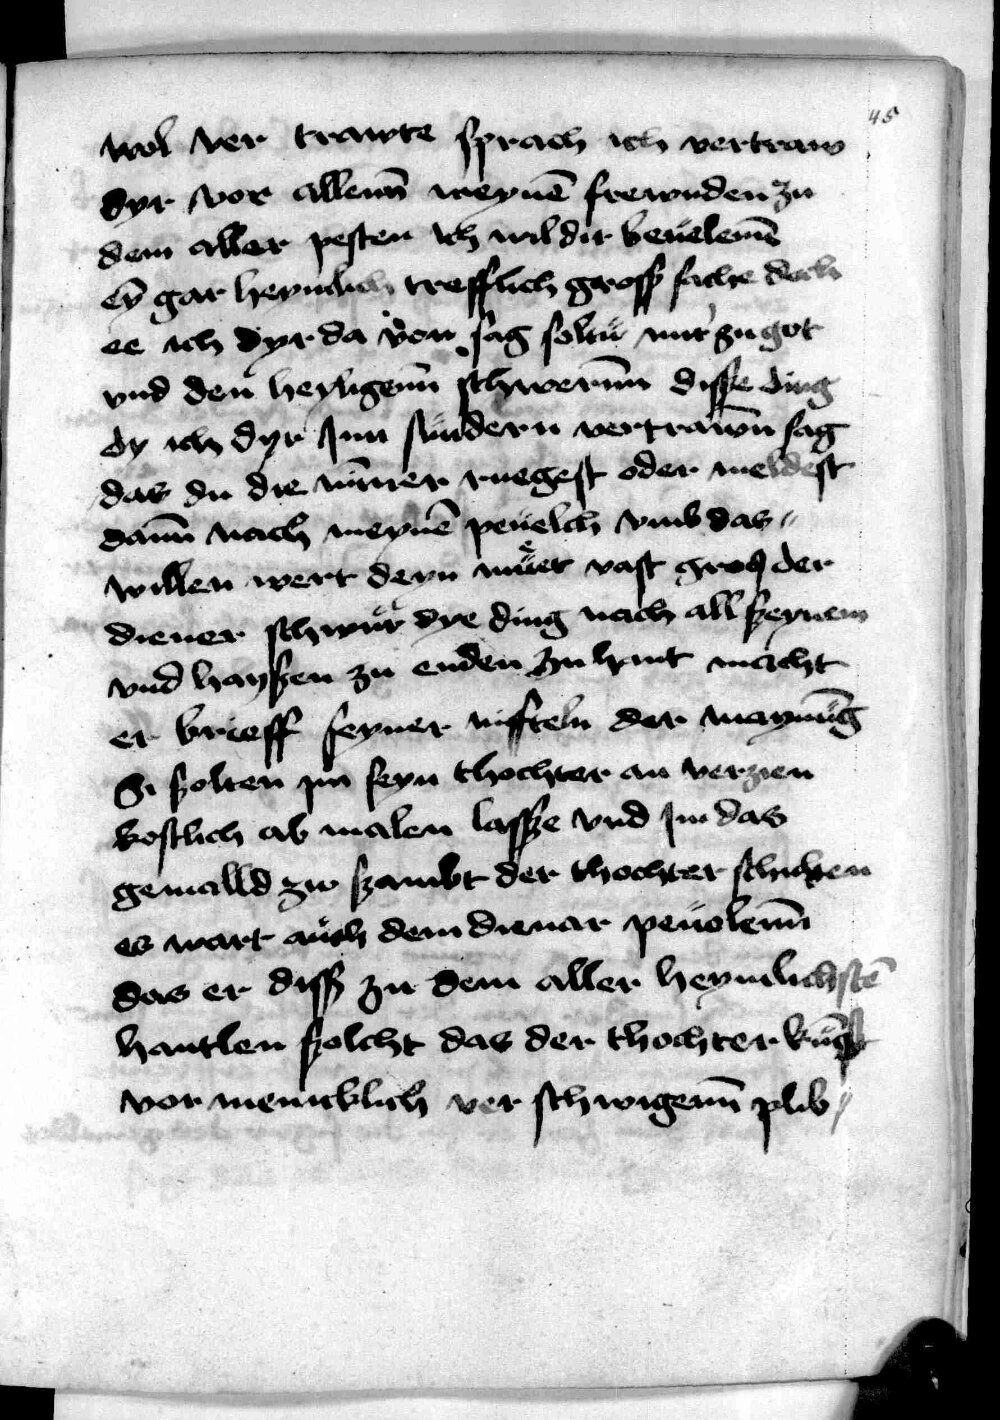 45
wol ver trawte sprach ich vertraw
dyr vor allenn̄ meynē frewnden zu
dem aller pesten ich wil dir beuelenn̄
eȳ gar heymlich trefflich gross sache doch
ee ich dyr da von sag soltu mir zu got
vnd den heyligenn̄ schwerenn̄ disse ding
dy ich dyr Inn sundern vertrawn̄ sag
das du die nȳmer ruegest oder meldest
dann̄ nach meynē peuelch vmb das //
willen wert deyn muet vast gros der
diener schwuer dye ding nach all szeynem
vnd hayszen zu enden zu hant macht
er brieff seyner nifteln der maynūg
Si szolten im seyn thochter an verzien
kostlich ab malen lassze vnd Im das
gemalld zw szambt der thochter schicken
es wart auch dem dienar peuolenn̄
das er diss zu dem aller heymlichstē
hantlen szolcht das der thochter kūfft
vor menicklich ver schwigenn̄ plib //